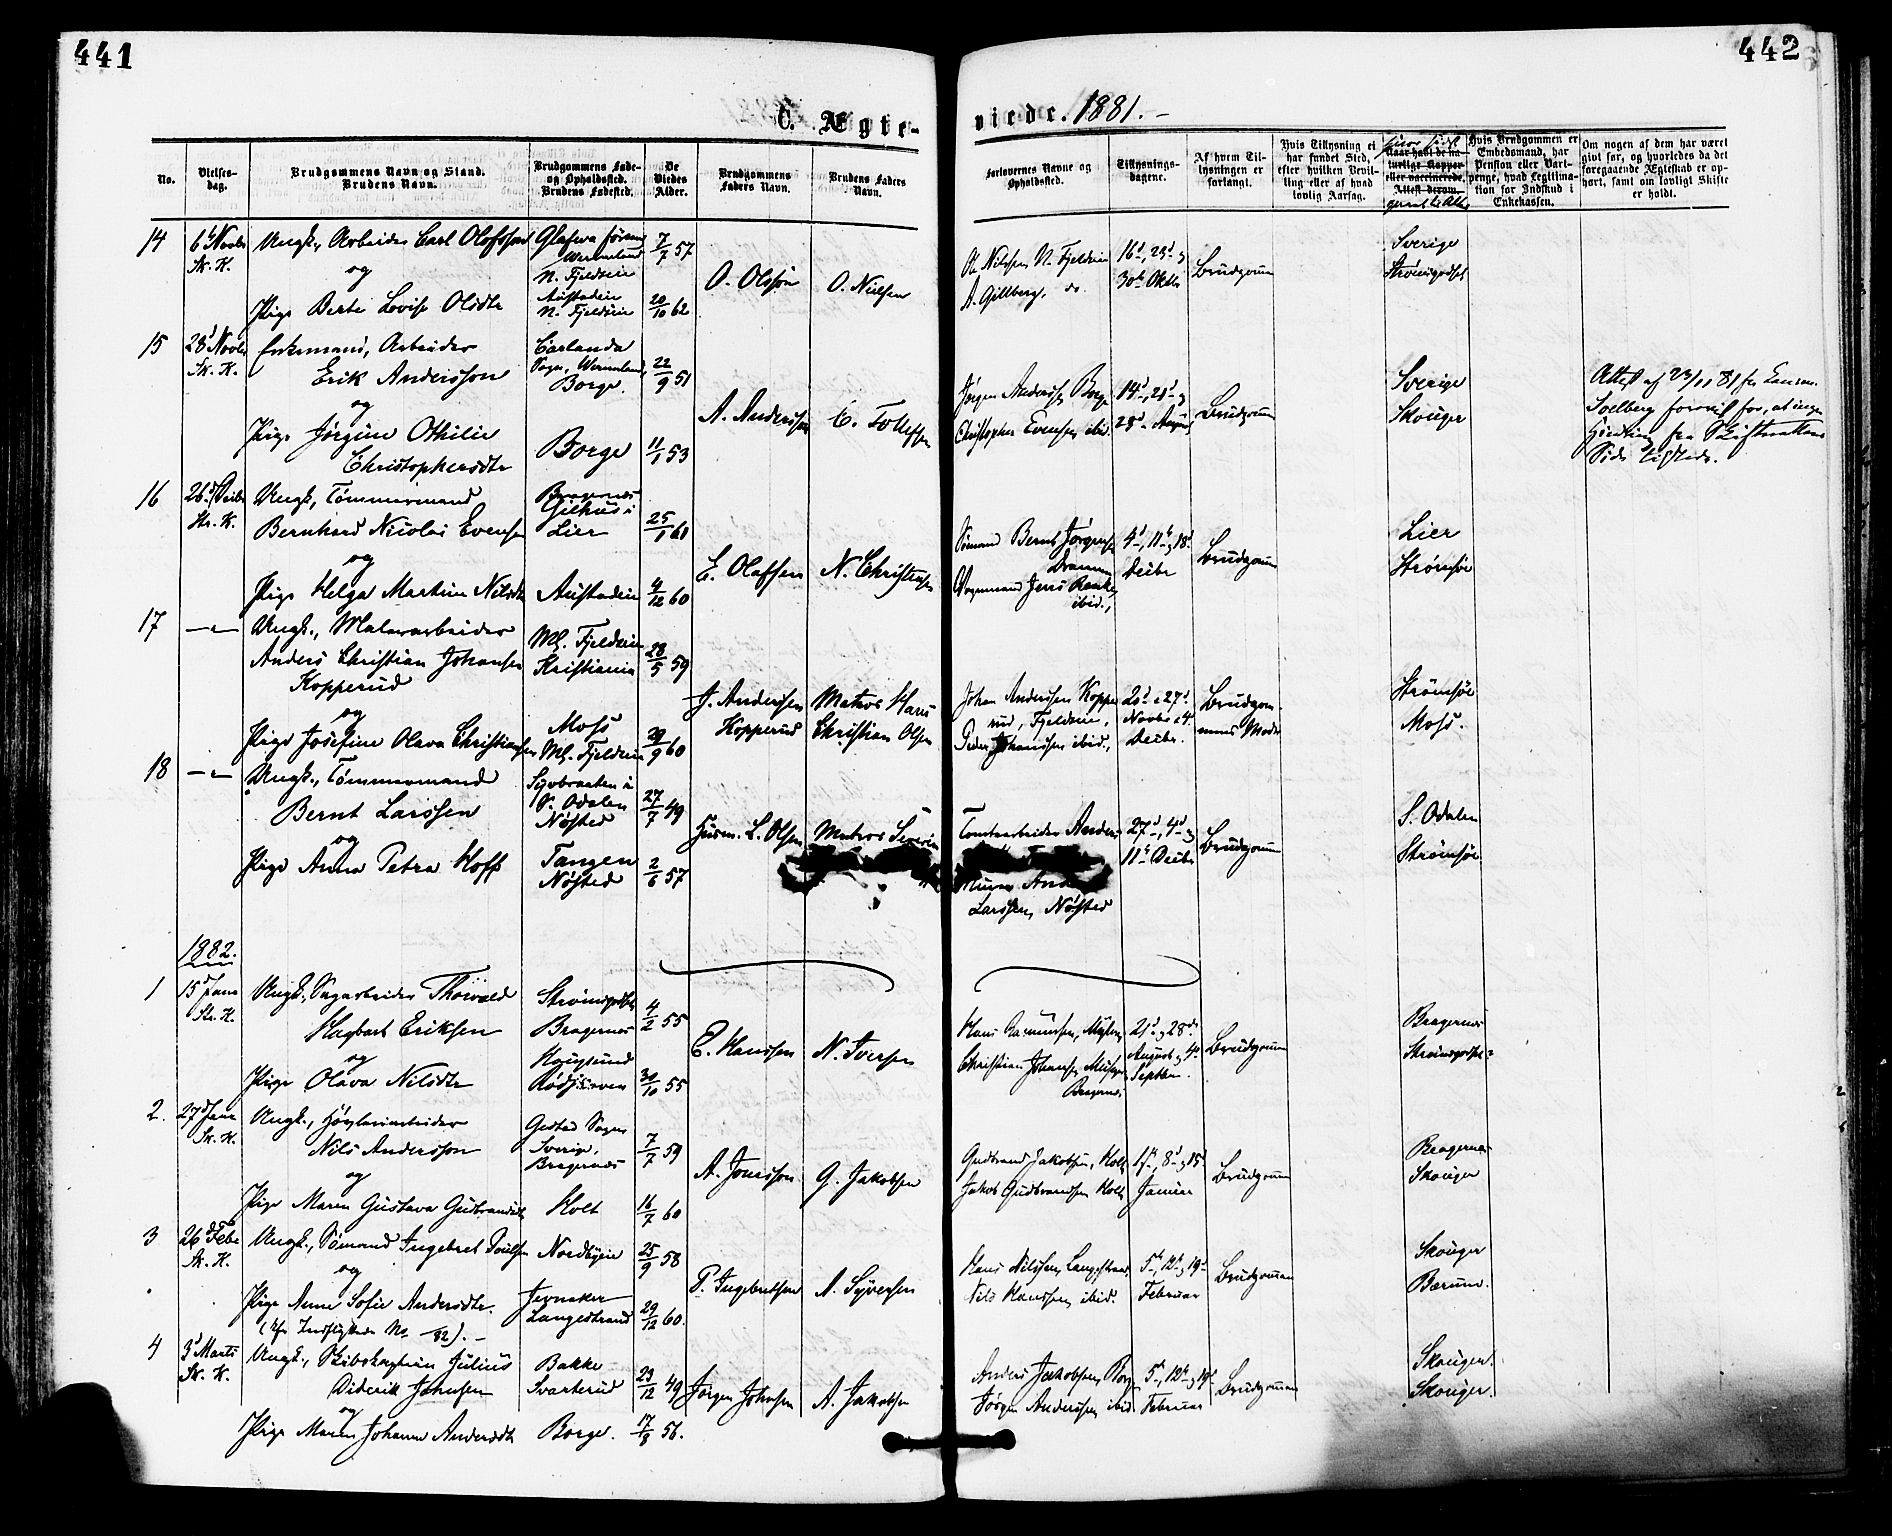 441
442
C. Ægte-
viede. 1881.-
No.
Vielses-
dag.
Brudgommens Navn og Stand.
Brudens Navn.
Brudgommens Føde-
og Opholdssted.
Brudens Fødested.
De
Viedes
Alder.
Brudgommens
Faders Navn.
Brudens Faders
Navn.
Forlovernes Navne og
Opholdssted.
Tillysnings-
dagene.
Af hvem Til-
lysningen er
forlangt.
Hvis Tillysning ei
har fundet Sted,
efter hvilken Bevil-
ling eller af hvad
lovlig Aarsag.
Naar havt de na-
turlige Kopper
eller vaccinerede.
Attest derom.
Hvis Brudgommen er
Embedsmand, har
Pension eller Vart-
penge, hvad Legitima-
tion for Indskud i
Enkekassen.
Om nogen af dem har været
gift før, og hvorledes da det
foregaaende Ægteskab er op-
hørt, samt om lovligt Skifte
er holdt.
14
6te Novbr
Sk. K.
Ungk., Arbeider Carl Olofsson
og
Pige Berte Lovise Olsdtr
Glafva
Wermeland
N. Fjeldzein
Austadein
N. Fjeldzein
7/7 57
20/10 62
O. Olsson
O. Nielsen
Ol. Nilssen, N. Fjeldzein
A. Gillberg, do
16d, 23d og
30te Oktbr
Brudgom
Sverige
Strømsgodset
15
28d Novbr
Sk. K.
Enkemand, Arbeider
Erik Andersson
og
Pige Jørgine Othilie
Christophersdtr
Carlanda
Sogn, Wermeland,
Borge.
Borge
22/9 51
11/1 53
A. Anderssen
C. Tollefsen
Jørgen Anderssen, Borge
Christopher Evensen, ibid.
14d, 21d og
28d August
Brudgom
Sverige
Skouger
Attest af 23/11 81 fra
Solberg for, at ingen
Hindring fra Skifterettens
Side tilstede.
16
26d Decbr
Str. K.
Ungk., Tømmermand
Bernhard Nicolai Evensen
og
Pige Helga Martine Nilsdtr
Bragernæs
Gilhus i
Lier
Austadein
25/1 61
4/12 60
E. Olafsen
N. Christensen
Sømand Bernt Jørgensen
Drammen
Vognmand Jens
ibid.,
4d, 11te og 18d
Decbr
Brudgom
Lier
Strømsøe
17
—〃—
Ungk., Malerarbeider
Anders Christian Johansen
Kopperud
og
Pige Josefine Olava Christiansen
Ml. Fjeldzein
Kristiania
Moss
Ml. Fjeldzein
28/5 59
29/9 60
J. Anderssen
Kopperud
Matros Hans
Christian Olsen
Johan Anderssen Koppe-
rud, Fjeldzein,
Peder Johanssen ibid.,
20d, 27d
Novbr og 4d
Decbr.
Brudgom-
mens Moder
Strømsøe
Moss.
18
—〃—
Ungk., Tømmermand
Bernt Larssen
og
Pige Anna Petra Hoff
Sigvbraaten i
S. Odalen
Nøsted
Tangen
Nøsted
27/7 49
2/6 57
Husm. L. Olsen
Matros Severin
Tomtearbeider Anders
Murer Anders
Larssen, Nøsted
27d, 4d og
11te Decbr
Brudgom
S. Odalen
Strømsøe
1882.
1
15d Janr
Str. K.
Ungk., Sagarbeider Thorvald
Hagbart Eriksen
og
Pige Olava Nilsdtr
Strømsgodset
Bragernæs
Kongssund
Rødskoven
4/2 55
30/10 55
E. Hanssen
N. Iversen
Hans Rasmussen,
Christian Johansen,
Bragernæs
21d og 28de
August og 4d
Septbr.
Brudgom
Bragernæs
Strømsgodset
2.
27d Janr
Sk. K.
Ungk., Høvleriarbeider
Nils Andersson
og
Pige Maren Gustava Gudbrandsdtr
Gestad Sogn
Sverige,
Bragernæs
Holt
7/7 59
16/7 60
A. Jonsson
G. Jakobsen
Gudbrand Jakobsen, Holt
Jakob Gudbrandsen Holt
1ste, 8d og 15d
Januar
Brudgom
Bragernæs
Skouger
3
26d Febr
Sk. K.
Ungk., Sømand Ingebret Poulsen
og
Pige Anne Sofie Andersdtr.
(Cfr Indflyttede No /82).-
Nordbyeie
Jevnaker
Langestrand
25/9 58
29/12 60.
P. Ingebretsen
A. Syversen
Hans Nilssen, Langestrand
Nils Hanssen, ibid.
5te, 12te og 19d
Februar
Brudgommen
Skouger
Bærum.
4
3d Marts
Sk. K.
Ungk., Skibskaptein Julius
Diderik Johnsen
og
Pige Maren Johanne Andersdtr
Bakke
Svarterud
Borge.
23/12 49
17/8 56.
Jørgen Johnsen
A. Jakobsen
Anders Jakobsen, Borge
Jørgen Anderssen, ibid
5te, 12te og 19d
Februar
Brudgommen
Skouger.
Skouger.